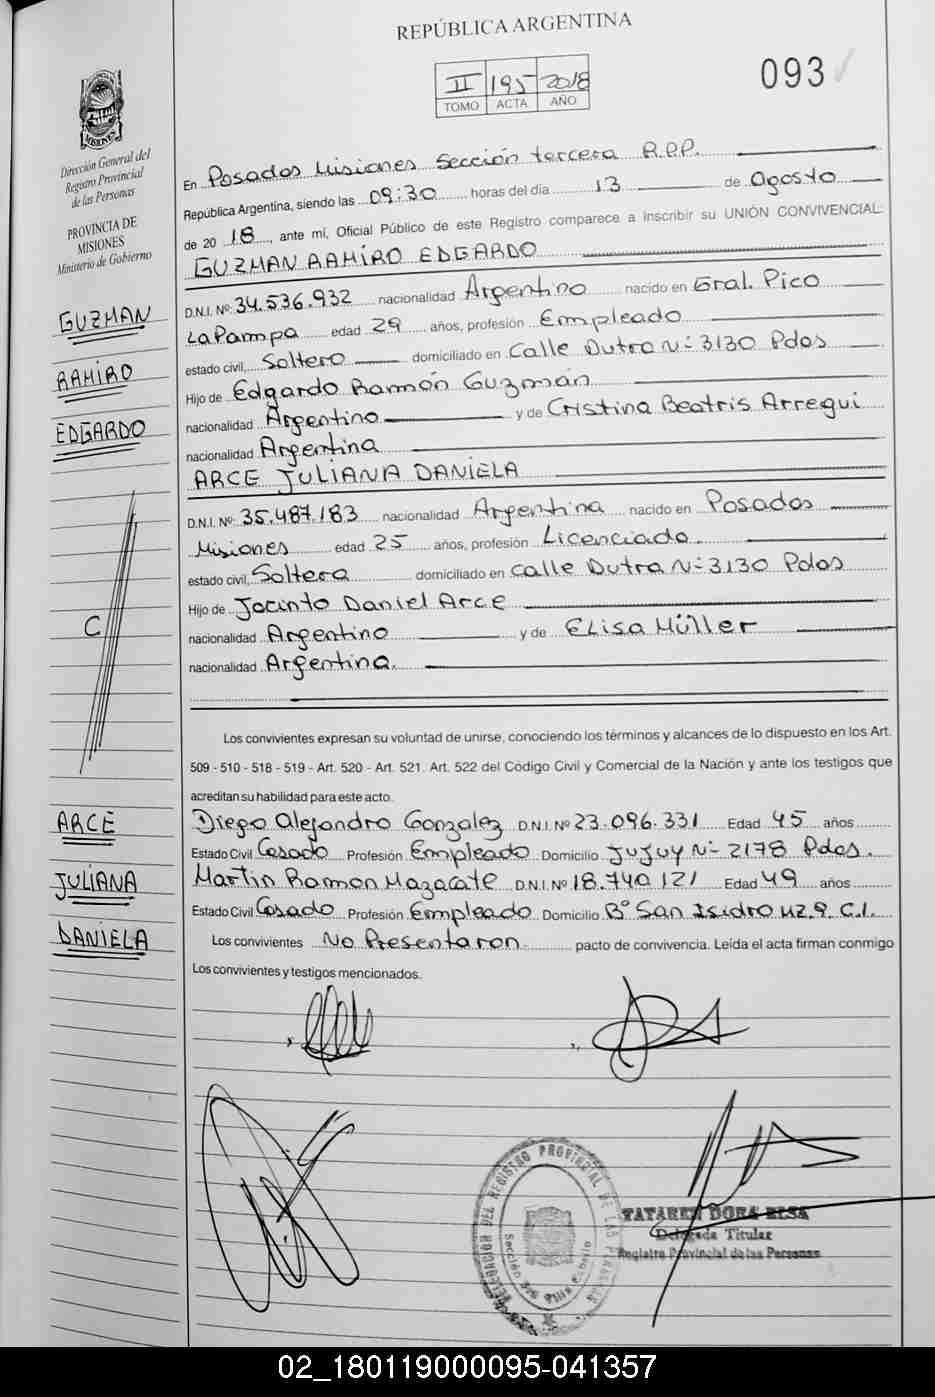 REPÚBLICA ARGENTINA
II 195 2018
TOMO ACTA AÑO
093
MISIONES
Dirección General del
Registro Provincial
de las Personas
PROVINCIA DE
MISIONES
Ministerio de Gobierno
GUZMAN
RAMIRO
EDGARDO
C
ARCE
JULIANA
DANIELA
En Posadas Misiones Sección tercera R.P.P.
República Argentina, siendo las 09:30 horas del día 13 de Agosto
de 20 18, ante mí, Oficial Público de este Registro comparece a inscribir su UNIÓN CONVIVENCIAL:
GUZMAN RAMIRO EDGARDO
D.N.I. Nº 34.536.932 nacionalidad Argentino nacido en Gral. Pico
La Pampa edad 29 años, profesión Empleado
estado civil, Soltero domiciliado en Calle Dutra Nº 3130 Pdas
Hijo de Edgardo Ramón Guzmán
nacionalidad Argentino y de Cristina Beatris Arregui
nacionalidad Argentina
ARCE JULIANA DANIELA
D.N.I. Nº 35.487.183 nacionalidad Argentina nacido en Posadas
Misiones edad 25 años, profesión Licenciada.
estado civil, Soltera domiciliado en Calle Dutra Nº 3130 Pdas
Hijo de Jacinto Daniel Arce
nacionalidad Argentino y de Elisa Müller
nacionalidad Argentina.
Los convivientes expresan su voluntad de unirse, conociendo los términos y alcances de lo dispuesto en los Art.
509 - 510 - 518 - 519 - Art. 520 - Art. 521. Art. 522 del Código Civil y Comercial de la Nación y ante los testigos que
acreditan su habilidad para este acto.
Diego Alejandro Gonzalez D.N.I. Nº 23.096.331 Edad 45 años
Estado Civil Casado Profesión Empleado Domicilio Jujuy Nº 2178 Pdas.
Martin Ramon Mazacate D.N.I. Nº 18.740.121 Edad 49 años
Estado Civil Casado Profesión Empleado Domicilio Bº San Isidro Mz.9. C.1.
Los convivientes No Presentaron pacto de convivencia. Leída el acta firman conmigo
Los convivientes y testigos mencionados.
DELEGACION DEL REGISTRO PROVINCIAL DE LAS PERSONAS
Sección 3ra Villa
TATAREN DORA ELSA
Delegada Titular
Registro Provincial de las Personas
02_180119000095-041357